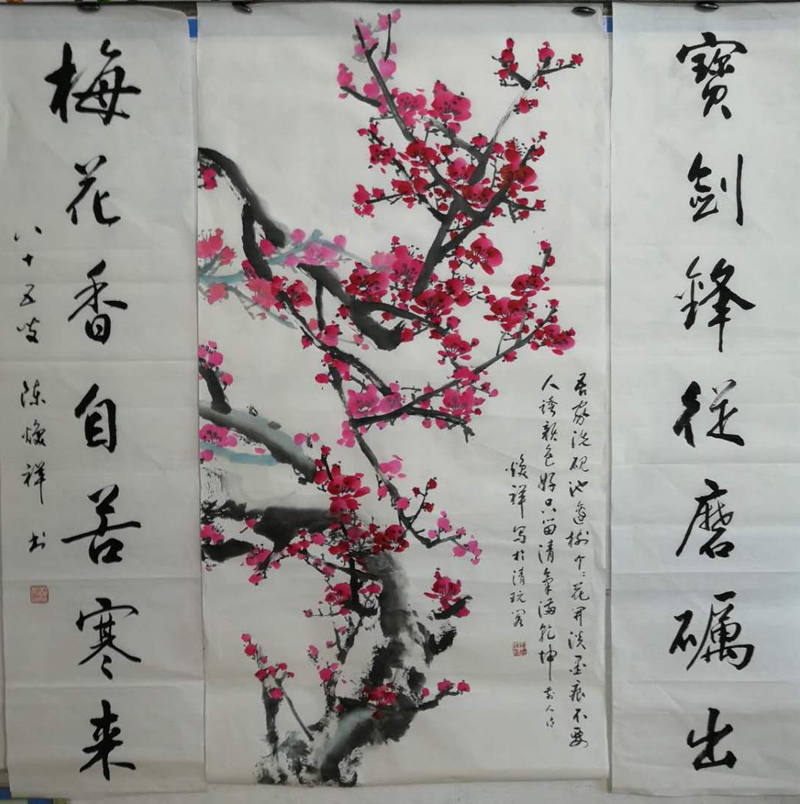 寶劍鋒從磨礪出
吾家洗硯池邊樹个々花開淡墨痕不要
人誇顏色好只留清氣滿乾坤古人詩
煥祥寫於清玩閣
梅花香自苦寒来
八十五叟 陈煥祥书